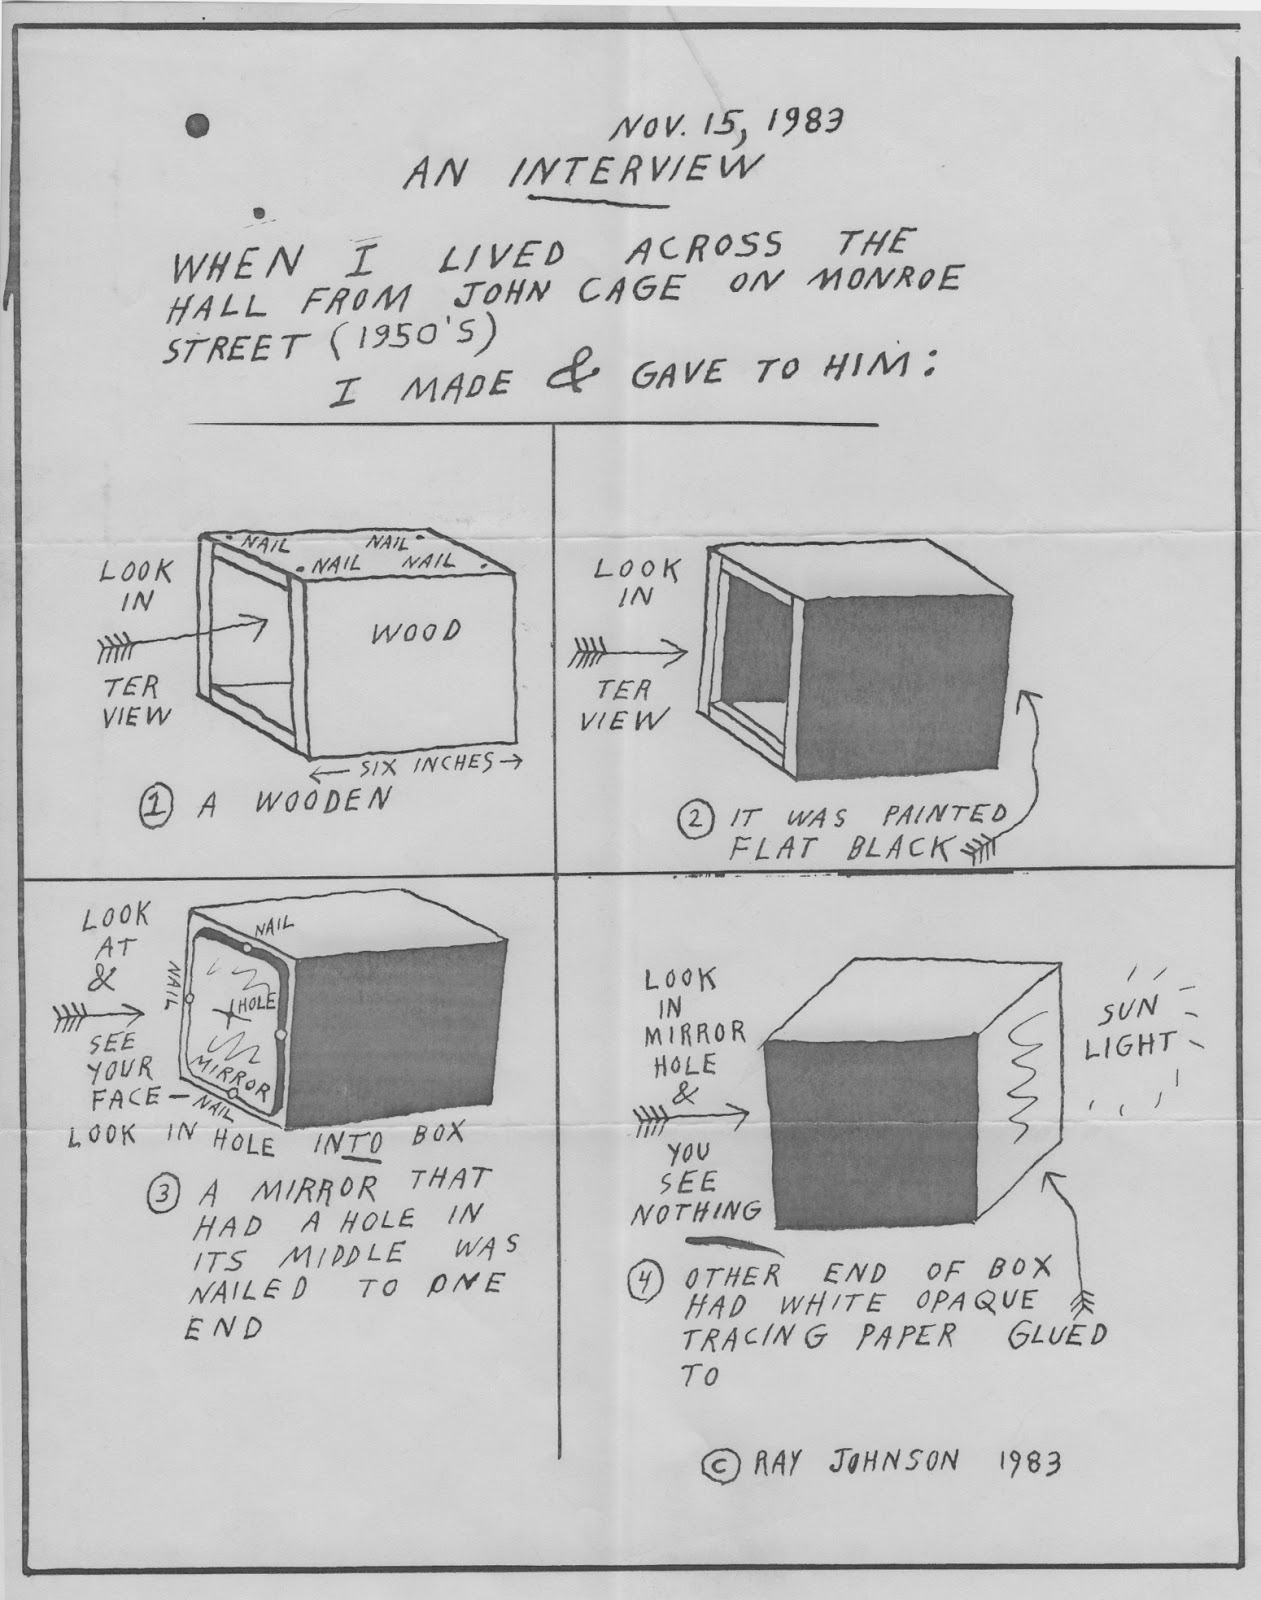 NOV. 15, 1983
AN INTERVIEW
WHEN I LIVED ACROSS THE
HALL FROM JOHN CAGE ON MONROE
STREET (1950'S)
I MADE & GAVE TO HIM:
LOOK
IN
TER
VIEW
NAIL
NAIL
NAIL
NAIL
WOOD
← SIX INCHES →
1 A WOODEN
LOOK
IN
TER
VIEW
2 IT WAS PAINTED
FLAT BLACK
LOOK
AT
&
SEE
YOUR
FACE –
NAIL
NAIL
HOLE
MIRROR
NAIL
LOOK IN HOLE INTO BOX
3 A MIRROR THAT
HAD A HOLE IN
ITS MIDDLE WAS
NAILED TO ONE
END
LOOK
IN
MIRROR
HOLE
&
YOU
SEE
NOTHING
SUN
LIGHT
4 OTHER END OF BOX
HAD WHITE OPAQUE
TRACING PAPER GLUED
TO
© RAY JOHNSON 1983